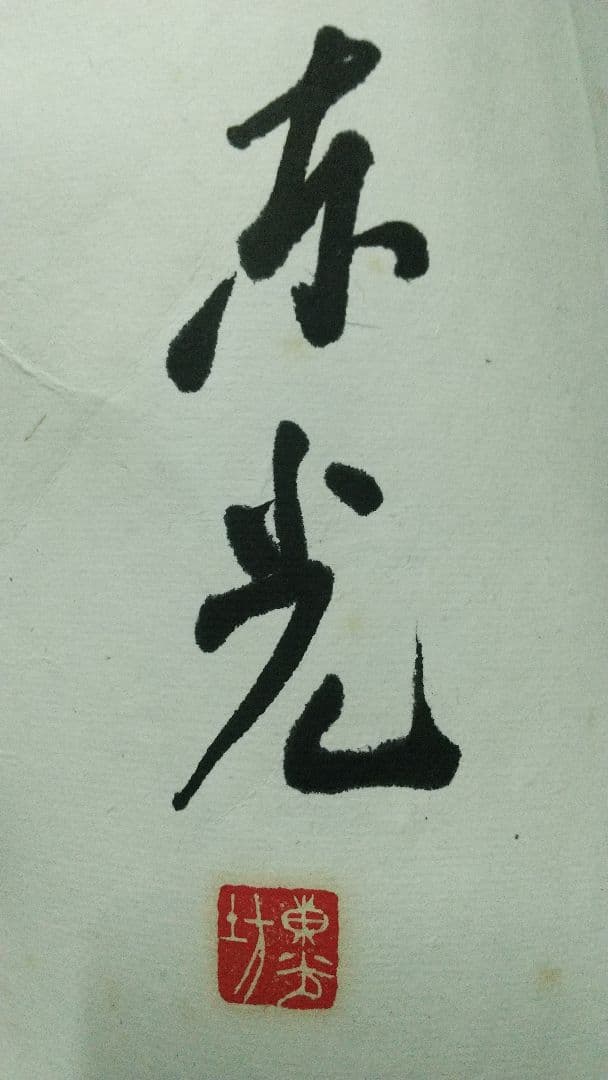 东光
東光坊